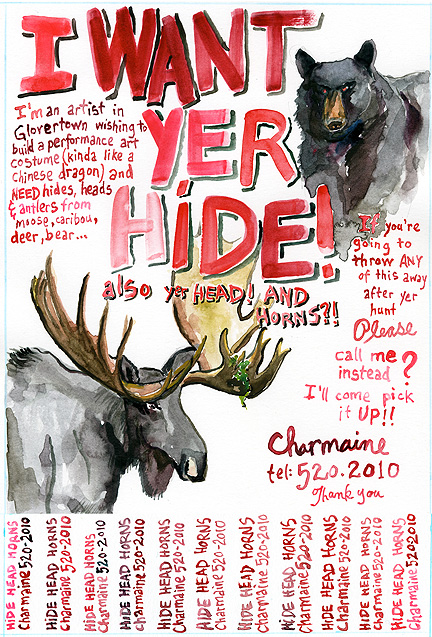 I WANT
YER
HIDE!
also yer HEAD! AND
HORNS?!
I'm an artist in
Glovertown wishing to
build a performance art
costume (kinda like a
chinese dragon) and
NEED hides, heads
& antlers from
moose, caribou,
deer, bear...
If you're
going to
throw ANY
of this away
after yer
hunt
Please
call me
instead?
I'll come pick
it UP!!
Charmaine
tel: 520.2010
Thank you
HIDE HEAD HORNS
Charmaine 520-2010
HIDE HEAD HORNS
Charmaine 520-2010
HIDE HEAD HORNS
Charmaine 520-2010
HIDE HEAD HORNS
Charmaine 520-2010
HIDE HEAD HORNS
Charmaine 520-2010
HIDE HEAD HORNS
Charmaine 520-2010
HIDE HEAD HORNS
Charmaine 520-2010
HIDE HEAD HORNS
Charmaine 520-2010
HIDE HEAD HORNS
Charmaine 520-2010
HIDE HEAD HORNS
Charmaine 520-2010
HIDE HEAD HORNS
Charmaine 5202010